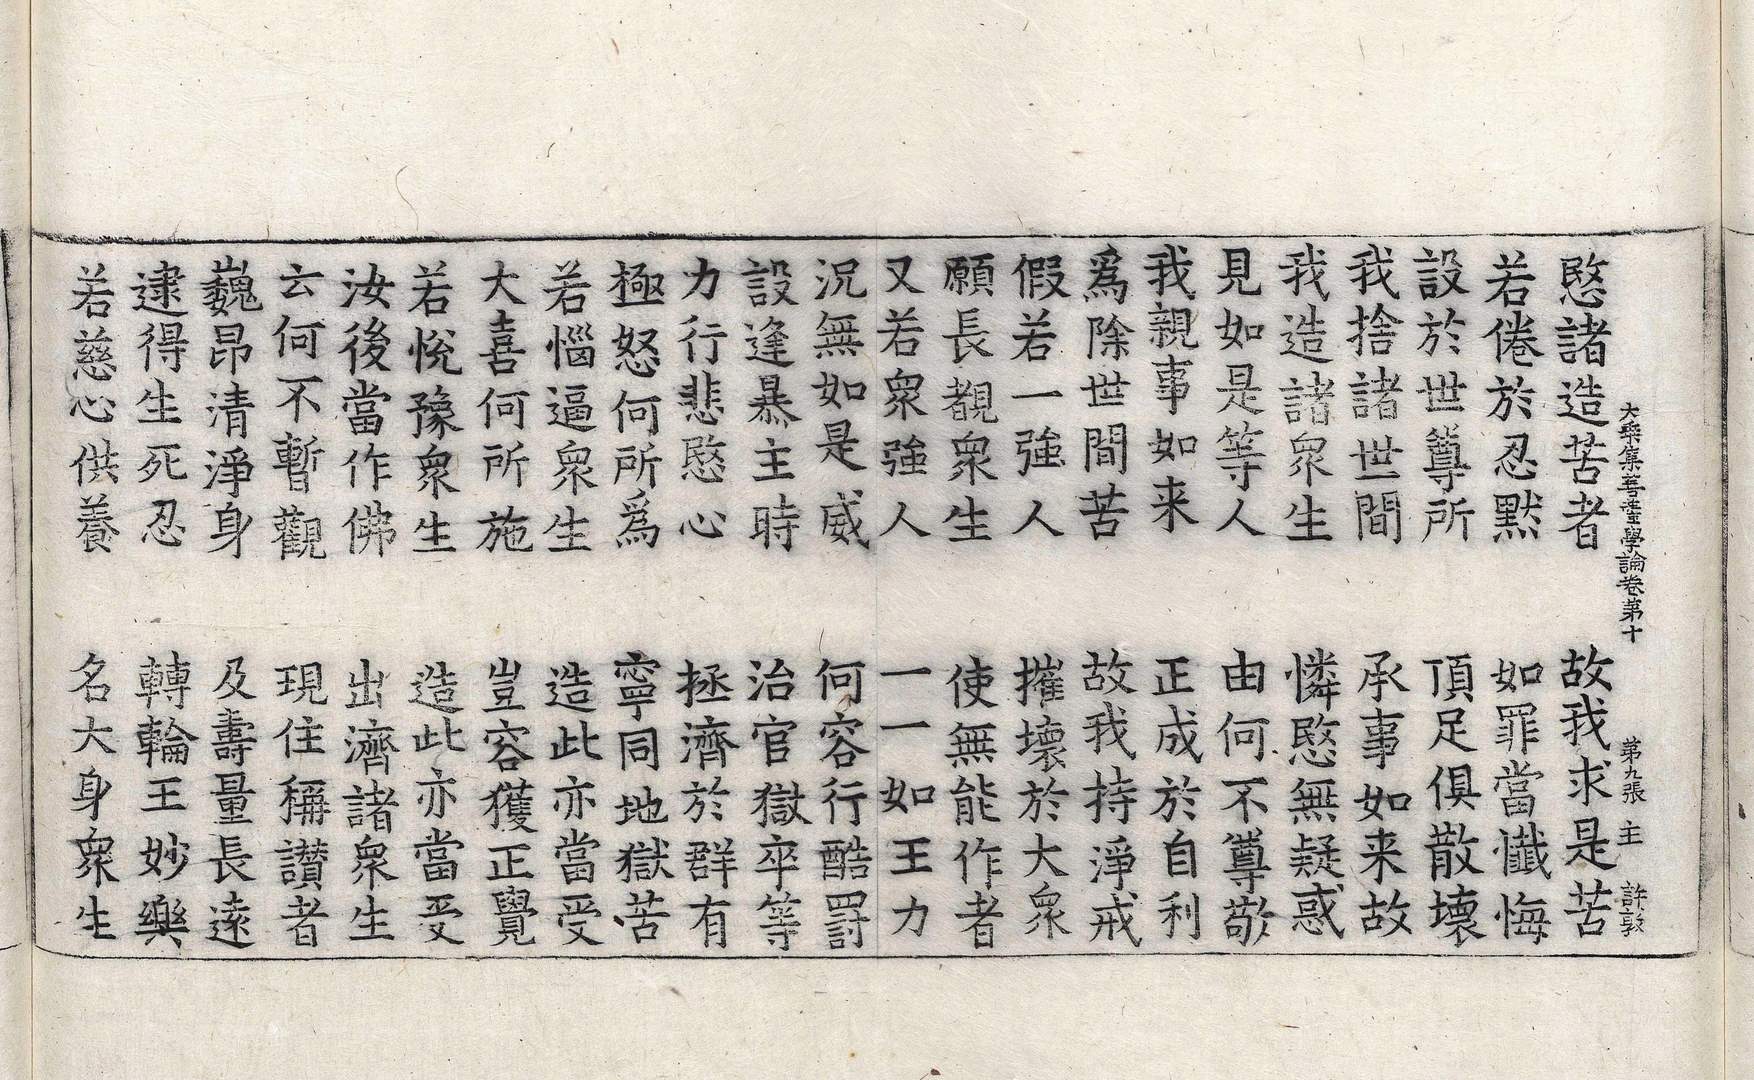 大乗集菩薩學論卷第十　第九張　主　許敦
愍諸造苦者　故我求是苦
若倦於忍黙　如罪當懺悔
設於世尊所　頂足俱散壞
我捨諸世間　承事如来故
我造諸衆生　憐愍無疑惑
見如是等人　由何不尊敬
我親事如来　正成於自利
爲除世間苦　故我持淨戒
假若一強人　摧壞於大衆
願長覩衆生　使無能作者
又若衆強人　一一如王力
況無如是威　何容行酷罰
設逢暴主時　治官獄卒等
力行悲愍心　拯濟於群有
極怒何所爲　寧同地獄苦
若惱逼衆生　造此亦當受
大喜何所施　豈容獲正覺
若悅豫衆生　造此亦當受
汝後當作佛　出濟諸衆生
云何不暫觀　現住稱讃者
巍昂清淨身　及壽量長遠
逮得生死忍　轉輪王妙樂
若慈心供養　名大身衆生